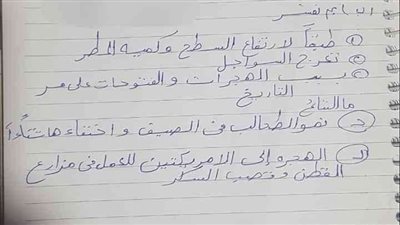 بم تفسر
① طبقاً لارتفاع السطح وكمية المطر
② تعرج السواحل
③ بسبب الهجرات والفتوحات على مر
التاريخ
ما النتائج
① نمو الطحالب فى الصيف واختفاءها شتاءاً
② الهجره إلى الامريكتين للعمل فى مزارع
القطن وقصب السكر